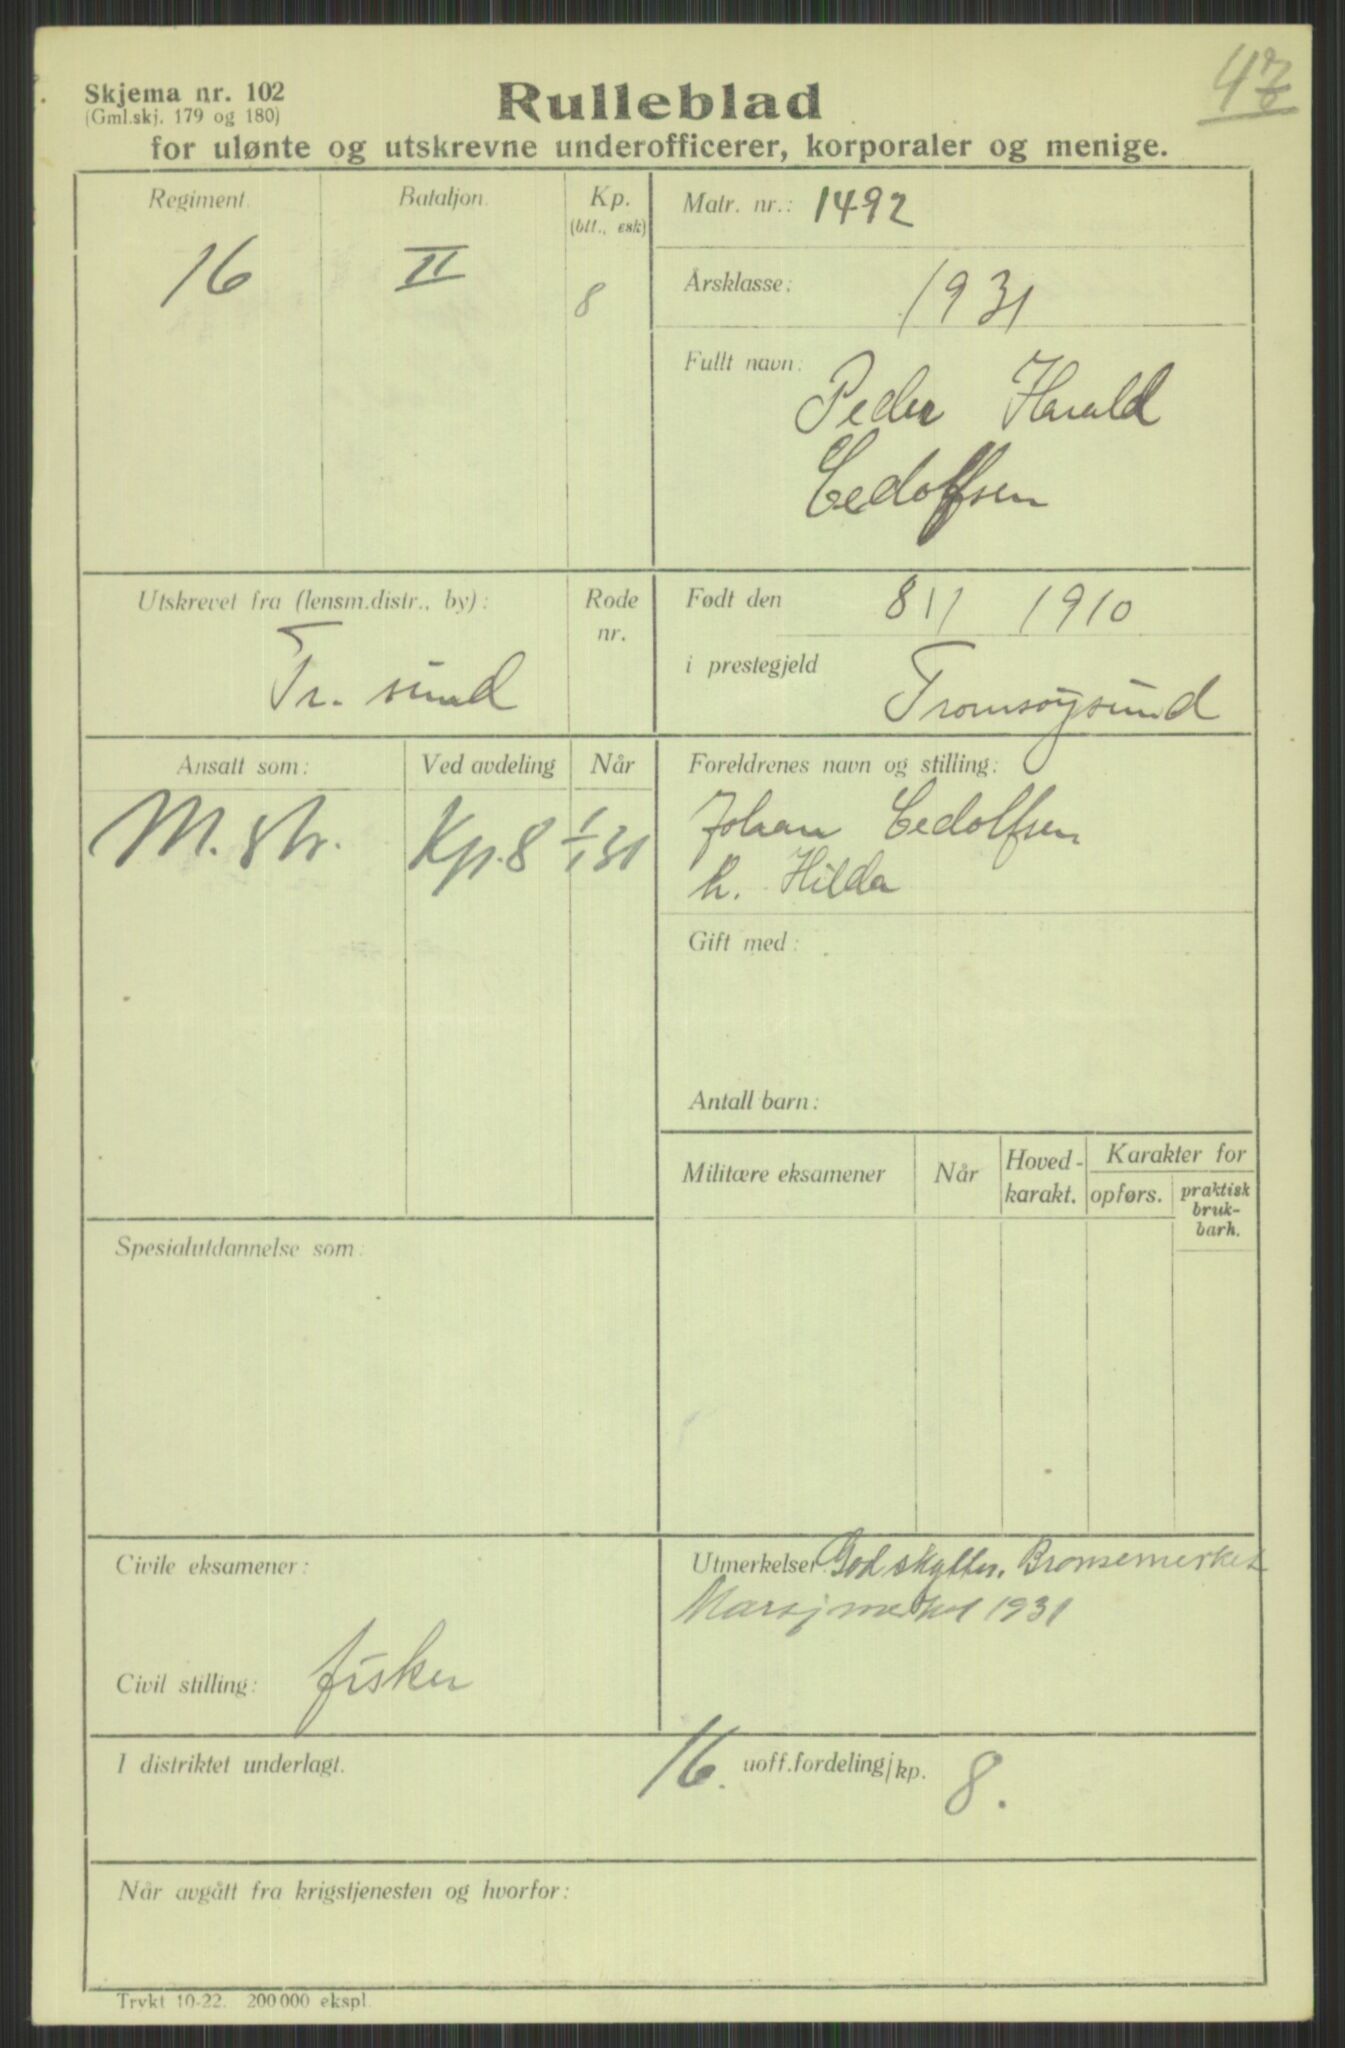 Skjema nr. 102
(Gml.skj. 179 og 180)
Rulleblad
for ulønte og utskrevne underofficerer, korporaler og menige.
Regiment.
Bataljon.
Kp.
(btt., esk)
16
II
8
Matr. nr.: 1492
Årsklasse: 1931
Fullt navn: Peder Harald
Cedolfsen
Utskrevet fra (lensm.distr., by):
Tr. sund
Rode
nr.
Født den 8/1 1910
i prestegjeld Tromsøysund
Ansatt som:
Ved avdeling
Når
M. str.
Kp. 8
1/1 31
Foreldrenes navn og stilling:
Johan Cedolfsen
h. Hilda
Gift med:
Antall barn:
Militære eksamener
Når
Hoved-
karakt.
Karakter for
opførs.
praktisk
bruk-
barh.
Spesialutdannelse som:
Civile eksamener:
Civil stilling: fisker
Utmerkelser God skytter. Bronsemerket
Marsjmerket 1931
I distriktet underlagt. 16. uoff.fordeling/kp. 8.
Når avgått fra krigstjenesten og hvorfor:
Trykt 10-22. 200 000 ekspl.